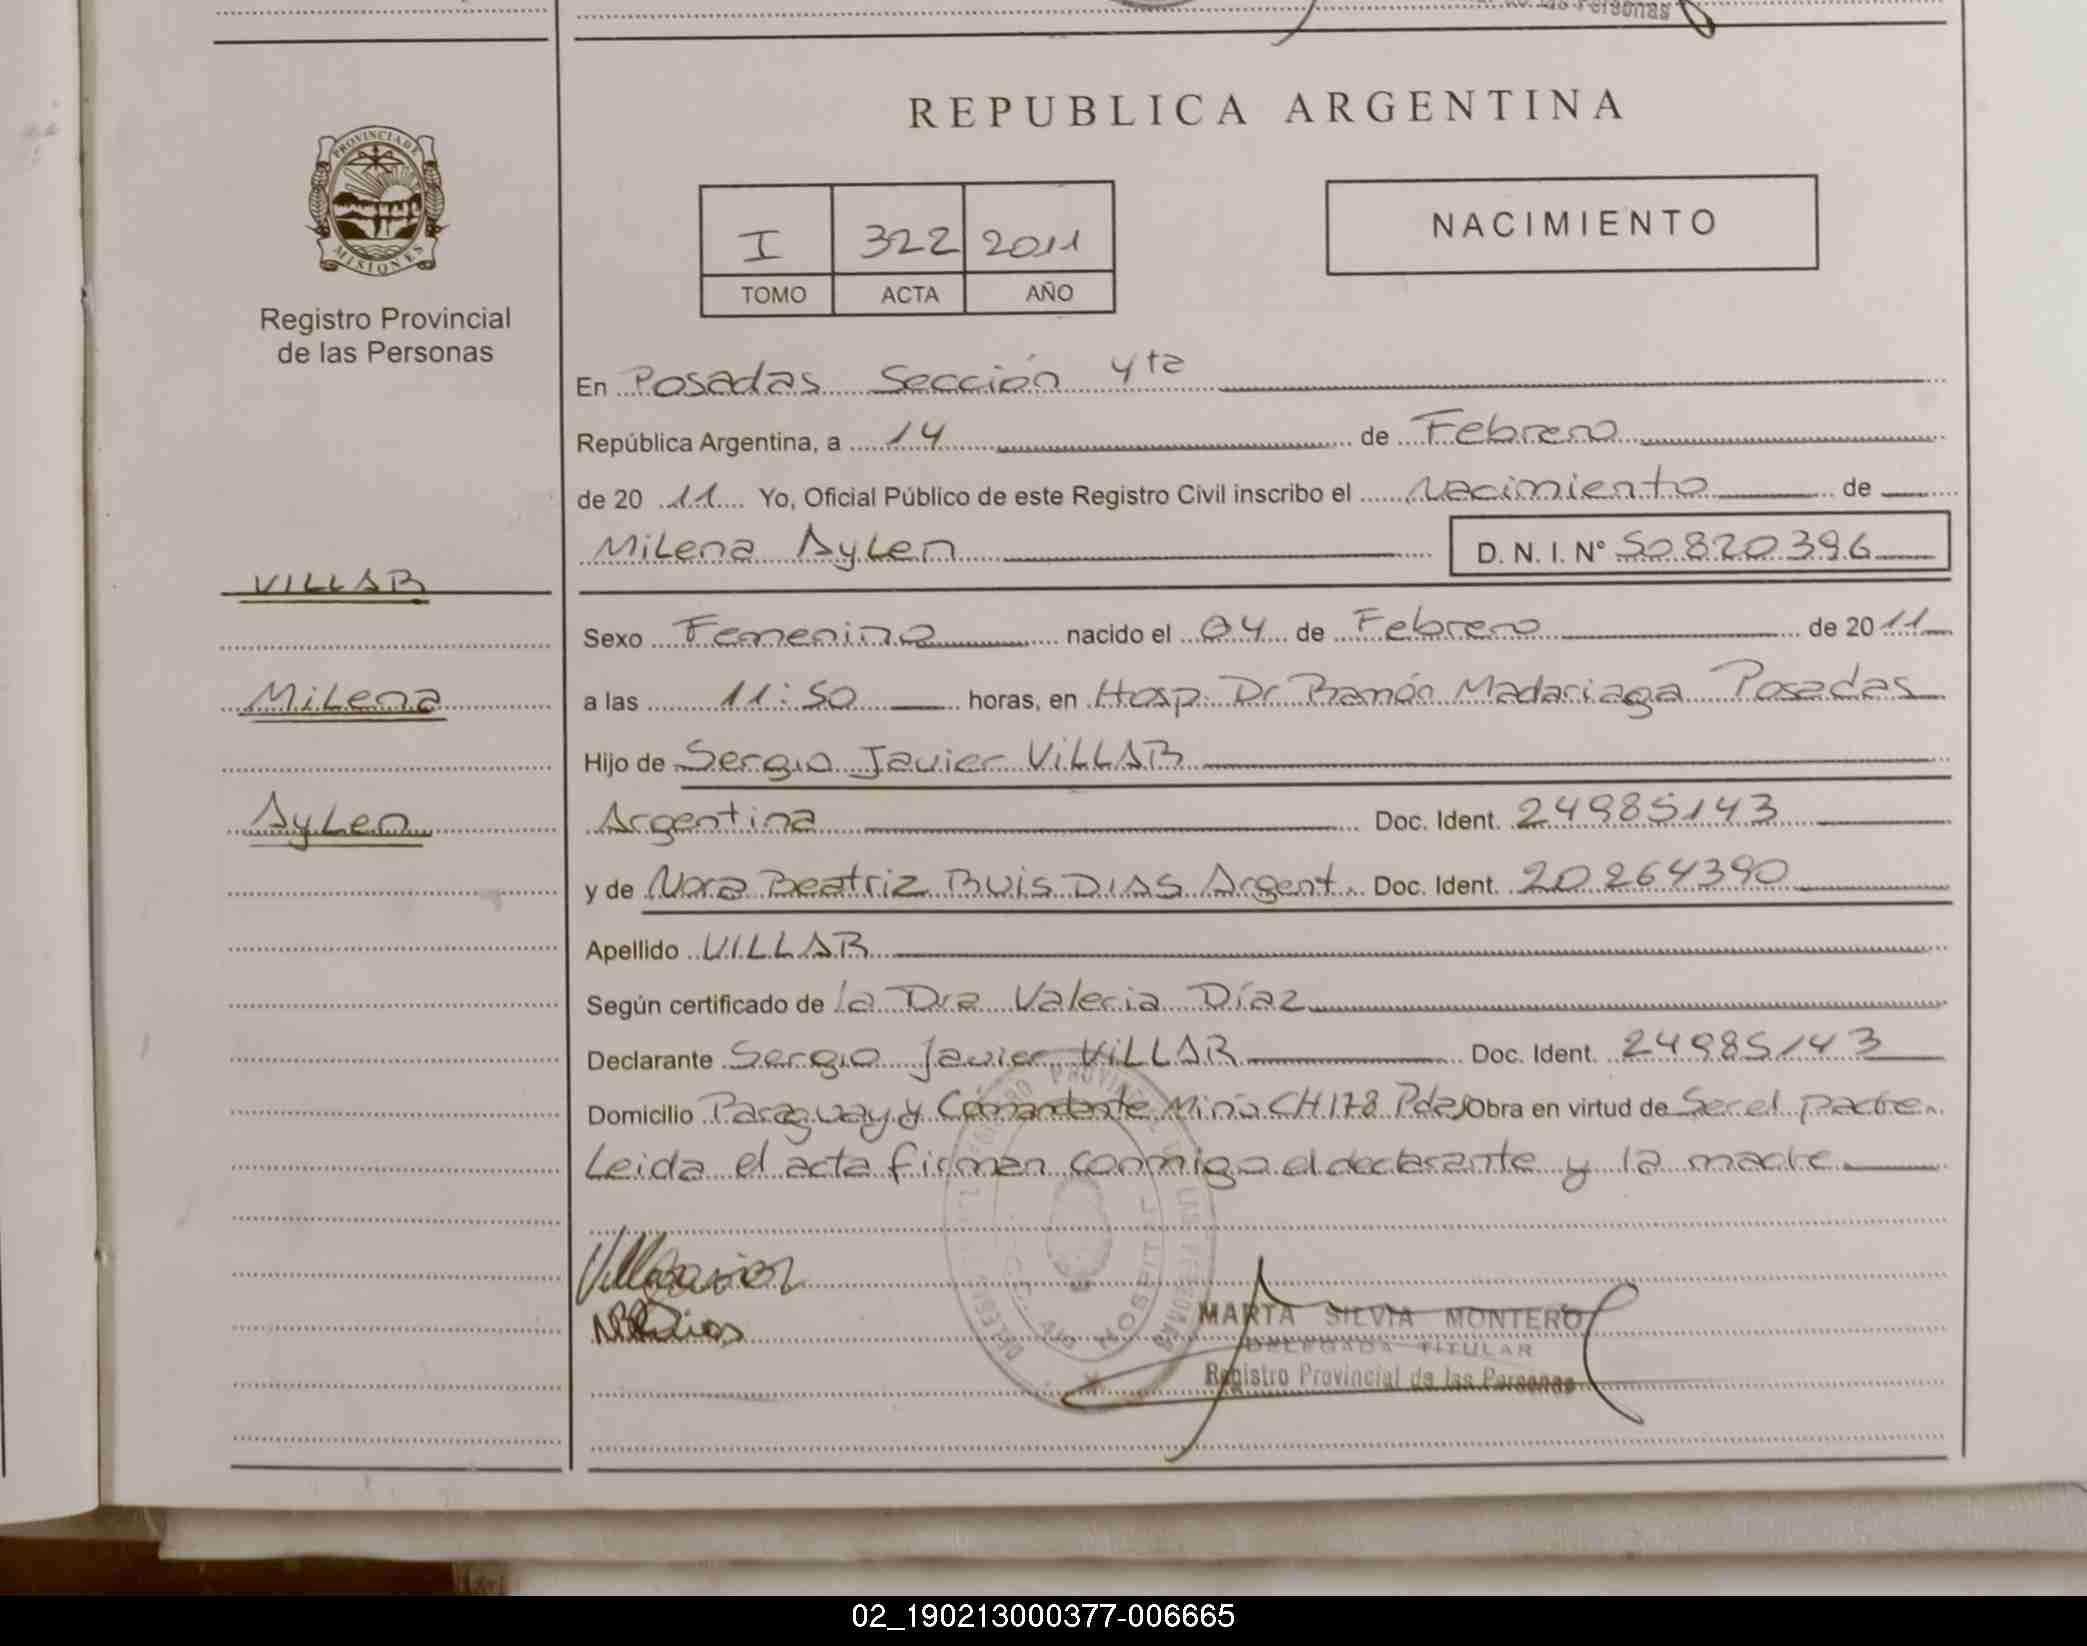 de las Personas
REPUBLICA ARGENTINA
PROVINCIA DE
MISIONES
Registro Provincial
de las Personas
I 322 2011
TOMO ACTA AÑO
NACIMIENTO
En Posadas Sección 4ta
República Argentina, a 14 de Febrero
de 20 11 Yo, Oficial Público de este Registro Civil inscribo el Nacimiento de
Milena Aylen D. N. I. N° 50820396
VILLAR
Milena
Aylen
Sexo Femenino nacido el 04 de Febrero de 20 11
a las 11:50 horas, en Hosp. Dr Ramón Madariaga Posadas
Hijo de Sergio Javier VILLAR
Argentina Doc. Ident. 24985143
y de Nora Beatriz RUIS DIAS Argent. Doc. Ident. 20264390
Apellido VILLAR
Según certificado de la Dra Valeria Díaz
Declarante Sergio Javier VILLAR Doc. Ident. 24985143
Domicilio Paraguay y Comandante Miño CH 178 Pdas Obra en virtud de Ser el padre.
Leida el acta firman conmigo el declarante y la madre
MARTA SILVIA MONTERO
DELEGADA TITULAR
Registro Provincial de las Personas
02_190213000377-006665